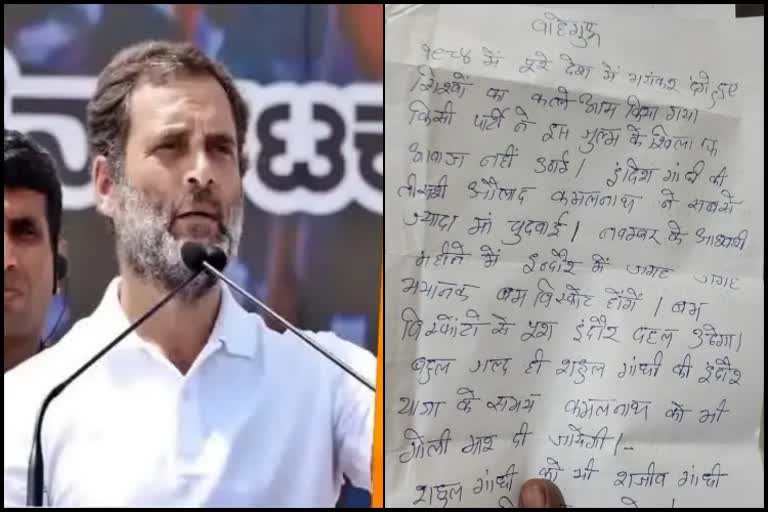 वाहेगुरू
१९८४ में पूरे देश में भयंकर दंगे हुए
सिखों का कत्ले आम किया गया
किसी पार्टी ने इस जुल्म के खिलाफ
आवाज नहीं उठाई। इंदिरा गांधी की
औलाद कमलनाथ ने सबसे
ज्यादा मां चुदवाई। नवम्बर के आखरी
महीने में इन्दौर में जगह जगह
भयानक बम विस्फोट होंगें। बम
विस्फोटों से पूरा इंदौर दहल उठेगा।
बहुत जल्द ही राहुल गांधी की इंदौर
यात्रा के समय कमलनाथ को भी
गोली मार दी जायेगी।-
राहुल गांधी को भी राजीव गांधी